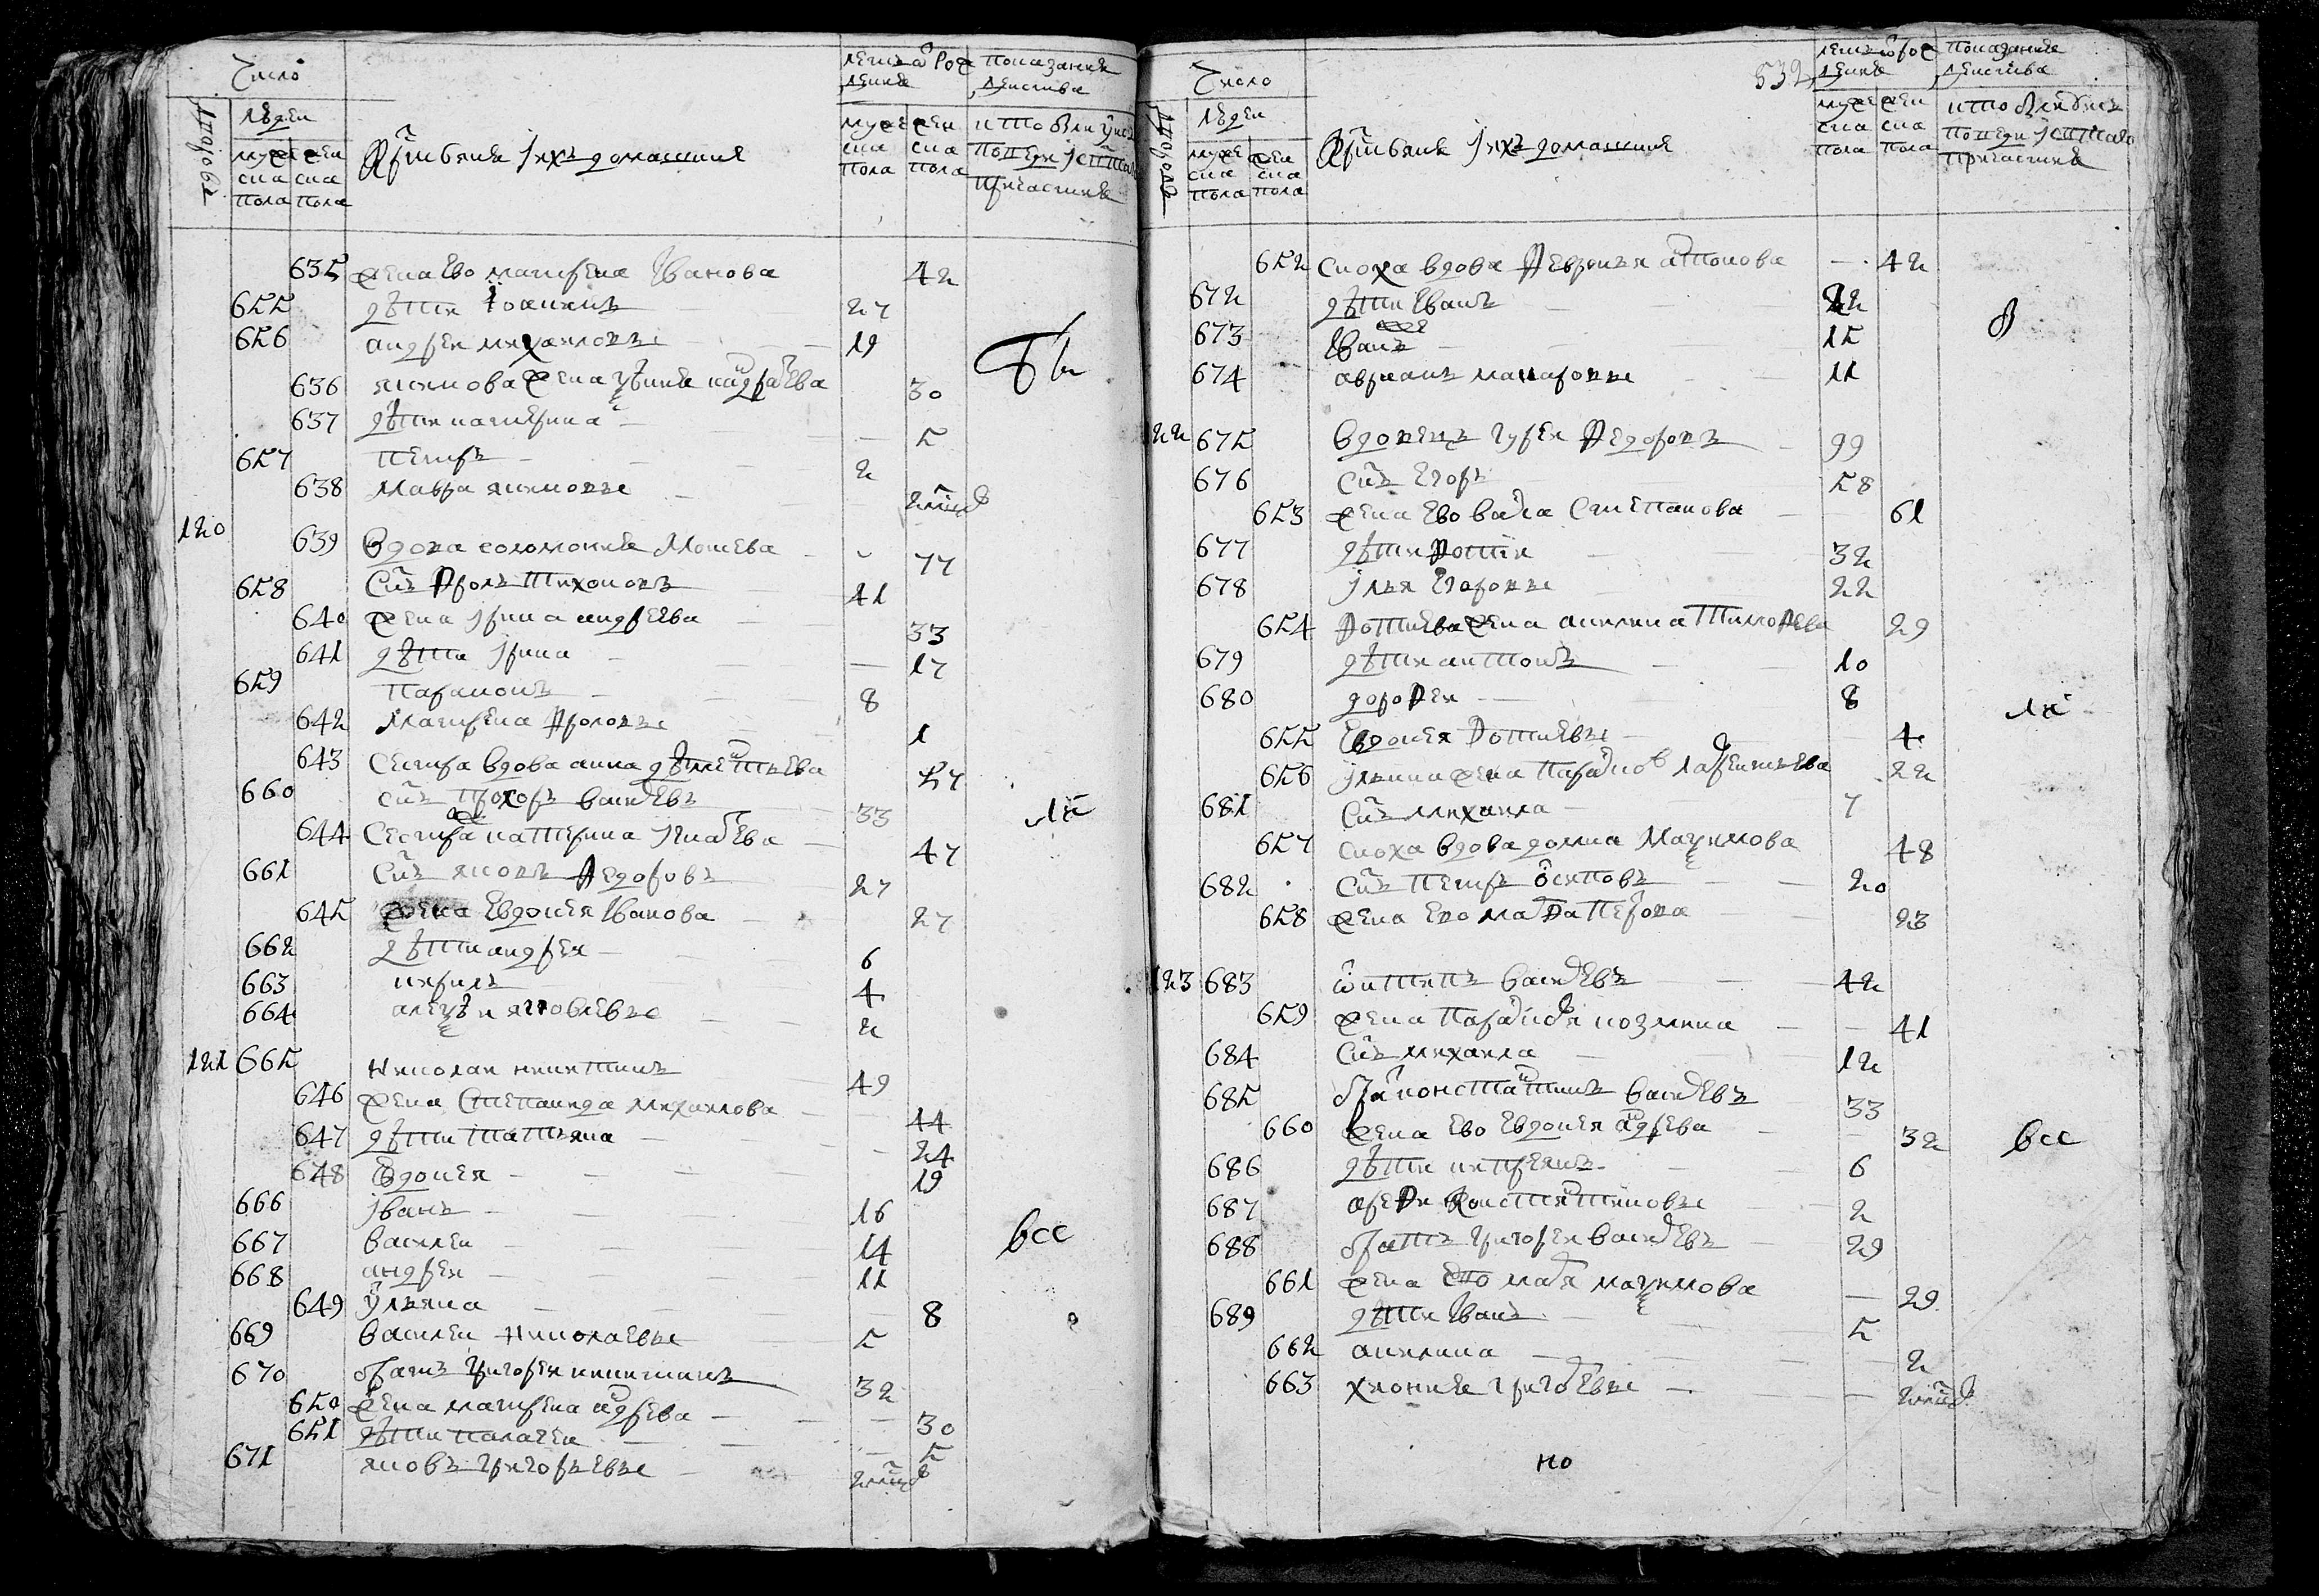 Число
людеи
дворовъ
мужеска пола
женска пола
Крестьяне и ихъ домашние
летъ от рождения
мужеска пола
женска пола
показание действа
кто были у исповеди и святаго причастия
635 жена ево матрена Иванова 42
655 дети Иоакимъ 27
656 андреи михаиловы 19
636 якимова жена 30
637 дети катерина 5
657 петръ 2
638 мавра якимовы
120 639 Вдова соломония Мосиева 77
658 Сынъ Фролъ Тихоновъ 41
640 жена Ирина андреева 33
641 дети Ирина 17
659 парамонъ 8
642 Матрена Фроловы 1
643 Сестра вдова анна дементьева 57
660 сынъ прохоръ васильевъ 33
644 Сестра катерина игнатьева 47
661 Сынъ яковъ Федоровъ 27
645 жена Евдокия Иванова 27
662 дети андреи 6
663 кирилъ 4
664 алексеи яковлевы 2
121 665 Николаи никитинъ 49
646 жена Степанида михаилова 44
647 дети татьяна 24
648 Евдокия 19
666 иванъ 16
667 василеи 14
668 андреи 11
649 ульяна 8
669 василеи николаевы 5
670 братъ григореи никитинъ 32
650 жена матрена андреева 30
651 дети палагея 5
671 яковъ григорьевы
всс
532
Число
людеи
дворовъ
мужеска пола
женска пола
Крестьяне и ихъ домашние
летъ от рождения
мужеска пола
женска пола
показание действа
кто были у исповеди и святаго причастия
652 сноха вдова Февронья антонова 42
672 дети Иванъ 22
673 Иванъ 15
674 авраамъ макаровы 11
122 675 вдовецъ гуреи Федоровъ 99
676 сынъ Егоръ 58
653 жена ево васса Степанова 61
677 дети Фотии 32
678 илья Егоровы 22
654 Фотиева жена акилина Тимофеева 29
679 дети антонъ 10
680 дорофеи 8
655 Евдокия Фотиевы 4
656 ильина жена парасков лаврентьева 22
681 сынъ михаила 7
657 сноха вдова домна Максимова 48
682 сынъ петръ осиповъ 20
658 жена ево марфа петрова 23
123 683 антипъ васильевъ 42
659 жена парасковья козмина 41
684 сынъ михаила 12
685 братъ константинъ васильевъ 33
660 жена ево Евдокия андреева 32
686 дети киприянъ 6
687 арефи Констянтиновы 2
688 братъ григореи васильевъ 29
661 жена ево марья максимова 29
689 дети Иванъ 5
662 акилина 2
663 хиония григорьевы
всс
но